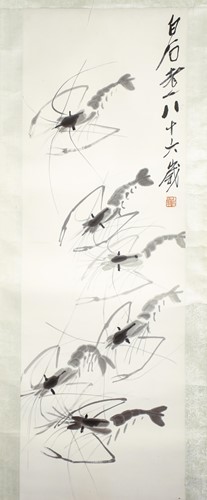 白石老人八十六歲